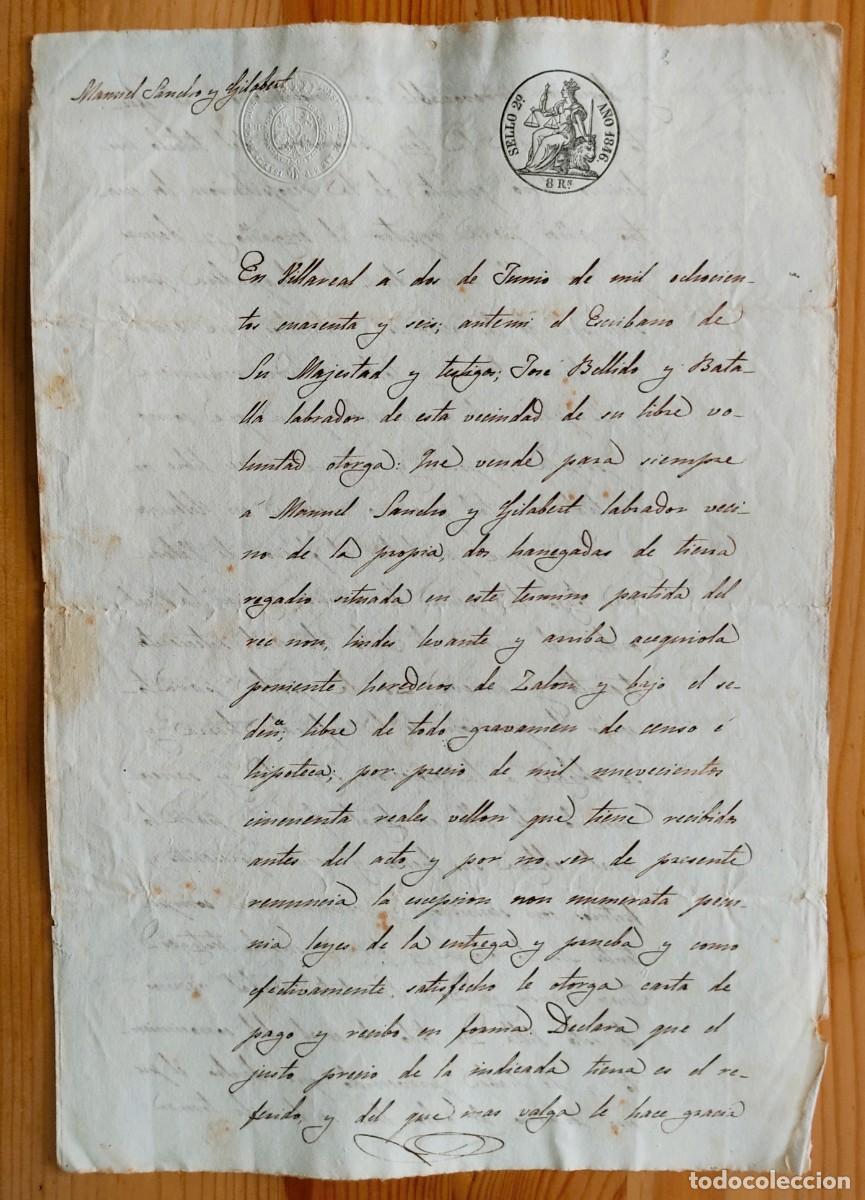 Manuel Sancho y Gilabert
SELLO 2º. AÑO 1846.
8 Rs.
En Villareal á dos de Junio de mil ochocien-
tos cuarenta y seis; antemi el Escribano de
Su Majestad y testigos; José Bellido y Bata-
lla labrador de esta vecindad de su libre vo-
luntad otorga: Que vende para siempre
á Manuel Sancho y Gilabert labrador veci-
no de la propia, dos hanegadas de tierra
regadio situada en este termino partida del
rec nou, lindes levante y arriba acequiola
poniente herederos de Zalon y bajo el se-
den.ª; libre de todo gravamen de censo é
hipoteca; por precio de mil nuevecientos
cincuenta reales vellon que tiene recibidos
antes del acto, y por no ser de presente
renuncia la escepcion non numerata pecu-
nia leyes de la entrega y prueba y como
efectivamente satisfecho le otorga carta de
pago y recibo en forma. Declara que el
justo precio de la indicada tierra es el re-
ferido, y del que mas valga le hace gracia
todocoleccion